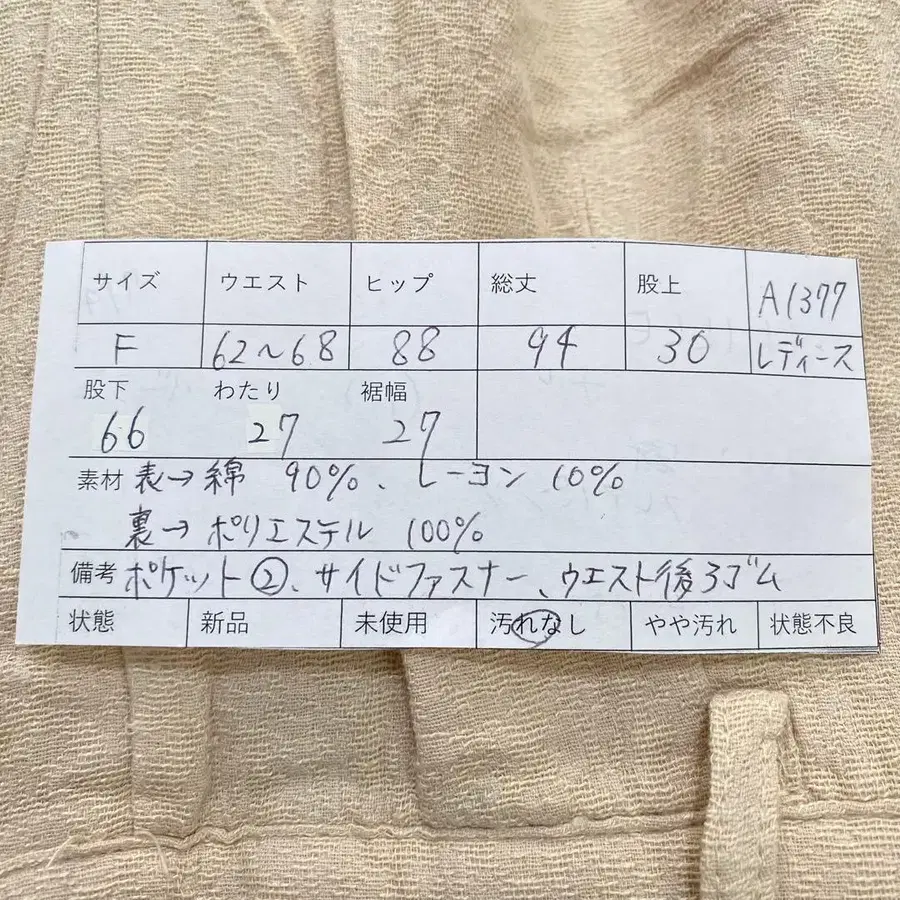 サイズ ウエスト ヒップ 総丈 股上 A1377
F 62〜68 88 94 30 レディース
股下 わたり 裾幅
66 27 27
素材 表→綿 90%、レーヨン 10%
裏→ポリエステル 100%
備考 ポケット②、サイドファスナー、ウエスト後ろゴム
状態 新品 未使用 汚れなし やや汚れ 状態不良